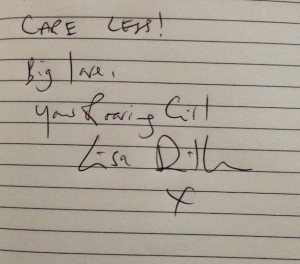 CARE LESS!
Big love,
your Roaring Girl
Lisa Dillon
X